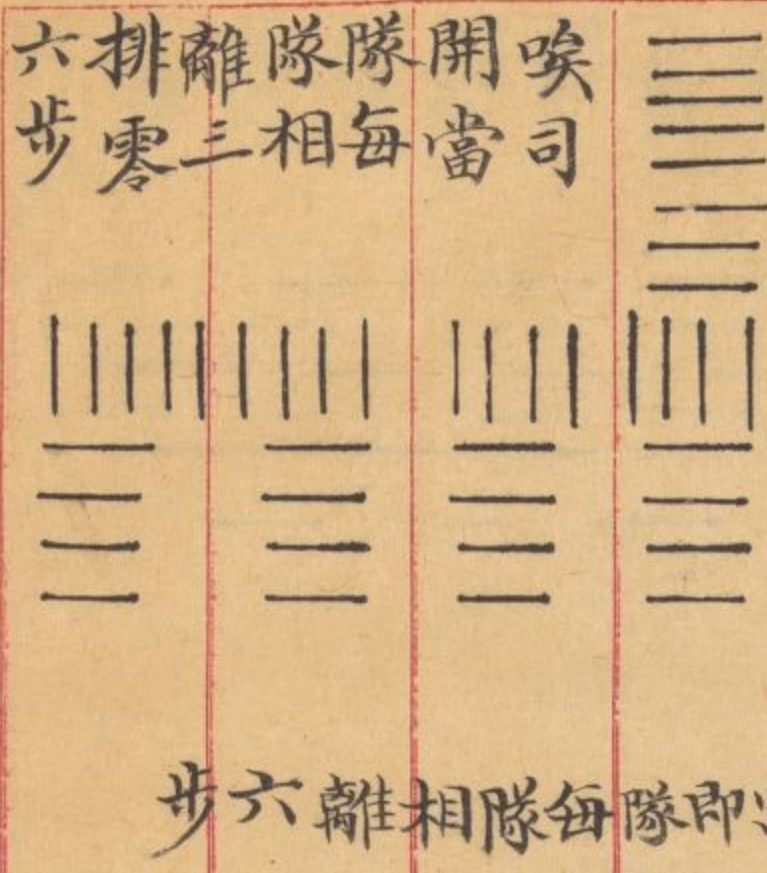 唉司
開當
隊每
隊相
離三
排零
六步
即隊每隊相離六步